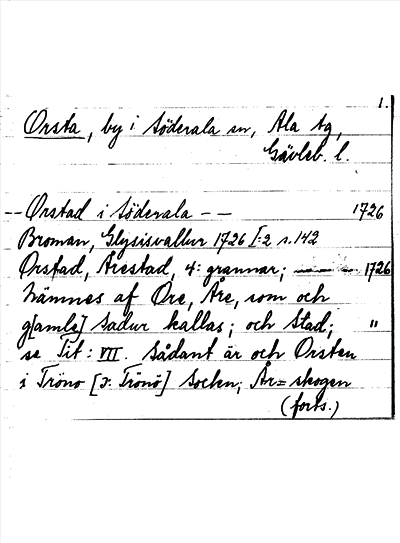 1.
Orsta, by i Söderala sn, Ala tg,
Gävleb. l.
-- Orstad i Söderala -- 1726
Broman, Glysisvallur 1726 I:2 s. 142
Orstad, Årestad, 4: grannar; —— — 1726
nämnes af Ore, Åre, som och
g[amle] Sadur kallas; och Stad; "
se Tit: VII. Sådant är och Orsten
i Tröno [ɔ: Trönö] Socken; År=skogen
(forts.)